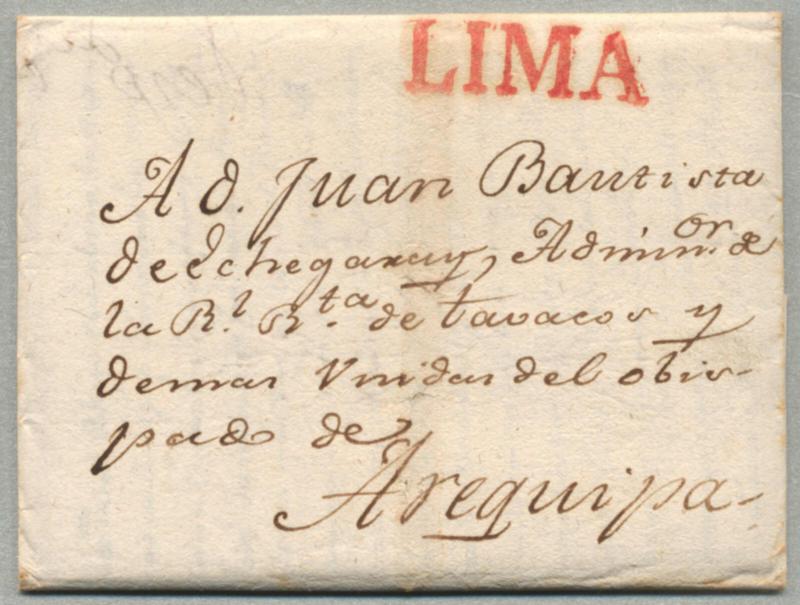 LIMA
A d. Juan Bautista
de Echegaray, Admin.or de
la Rl. Rta. de tavacos y
demas Vnidas del obis-
pado de
Arequipa-